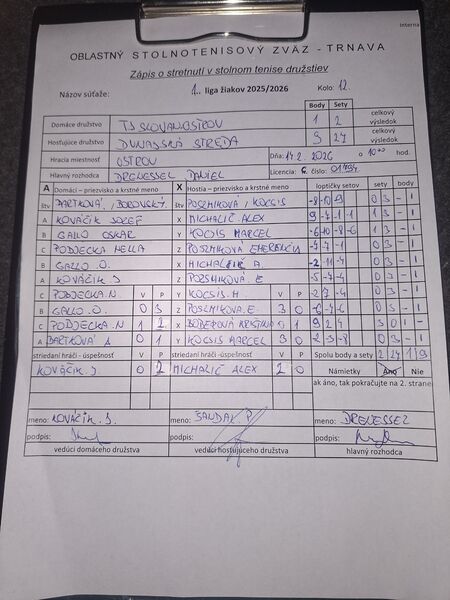 Interna
OBLASTNÝ STOLNOTENISOVÝ ZVÄZ - TRNAVA
Zápis o stretnutí v stolnom tenise družstiev
Názov súťaže: 1. liga žiakov 2025/2026 Kolo: 12.
Body Sety
Domáce družstvo TJ SLOVAN OSTROV 1 2 celkový výsledok
Hosťujúce družstvo DUNAJSKÁ STREDA 9 27 celkový výsledok
Hracia miestnosť OSTROV Dňa: 14.2.2026 o 10 hod.
Hlavný rozhodca DRGNESSEL DANIEL Licencia: C číslo: 01794
A Domáci - priezvisko a krstné meno X Hostia - priezvisko a krstné meno loptičky setov sety body
štv BARTKOVÁ, BOROVSKÝ štv POZSMIKOVÁ, KOCSIS -8 -10 9 0 3 - 1
A KOVÁČIK JOZEF X MICHALIČ ALEX 0 3 - 1
B GALLO OSKAR Y KOCSIS MARCEL -6 -10 -8 -6 0 3 - 1
C PODJECKA NELLA Z POZSMIKOVÁ EMERENCIA -7 -7 -1 0 3 - 1
B GALLO O. X MICHALIČ A -2 -11 -4 0 3 - 1
A KOVÁČIK J Z POZSMIKOVÁ E -5 -7 -4 0 3 - 1
C PODJECKA N. V P Y KOCSIS M V P -2 -7 -4 0 3 - 1
B GALLO O. 0 3 Z POZSMIKOVÁ E. 3 0 -6 -4 -6 0 3 - 1
C PODJECKA N 1 2 X KRISTÍNA 0 1 9 2 4 3 0 1 -
A BARTKOVÁ A 0 1 Y KOCSIS MARCEL 3 0 -2 -3 -8 0 3 - 1
striedaní hráči - úspešnosť V P striedaní hráči - úspešnosť V P Spolu body a sety 2 27 1 9
KOVÁČIK J 0 2 MICHALIČ ALEX 2 0 Námietky Áno Nie
ak áno, tak pokračujte na 2. strane
meno: KOVÁČIK J. meno: SANDAK P. meno:
podpis: podpis: podpis:
vedúci domáceho družstva vedúci hosťujúceho družstva hlavný rozhodca